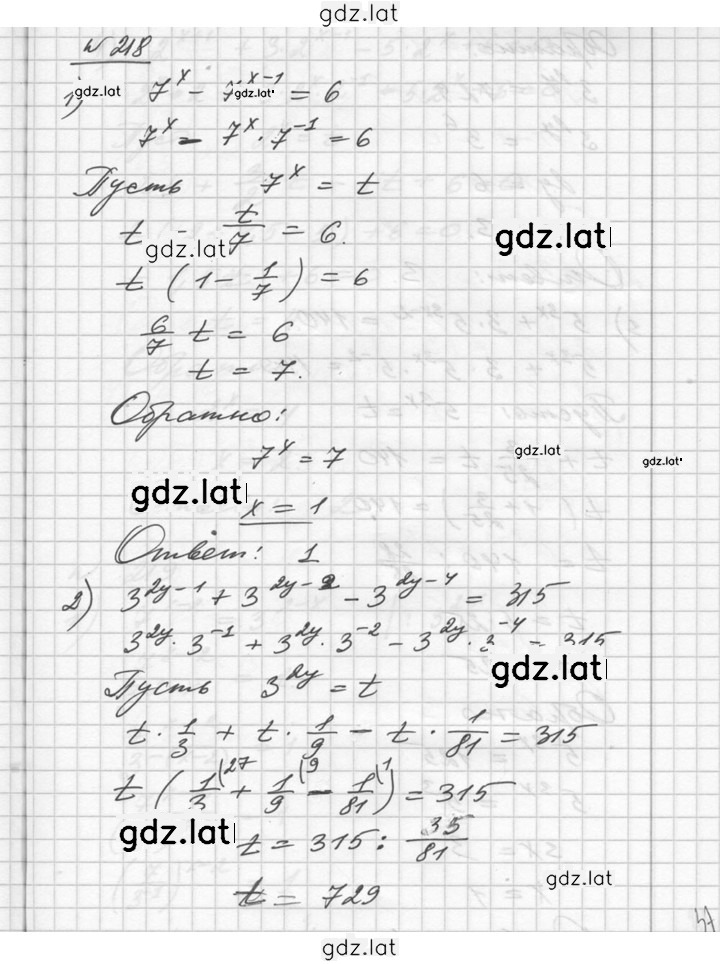 gdz.lat
№ 218
1) 7^x - 7^{x-1} = 6
gdz.lat gdz.lat
7^x - 7^x · 7^{-1} = 6
Пусть 7^x = t
t - t/7 = 6.
gdz.lat gdz.lat
t (1 - 1/7) = 6
6/7 t = 6
t = 7.
Обратно:
7^x = 7
gdz.lat gdz.lat
gdz.lat
x = 1
Ответ: 1
2) 3^{2y-1} + 3^{2y-2} - 3^{2y-4} = 315
3^{2y} · 3^{-1} + 3^{2y} · 3^{-2} - 3^{2y} · 3^{-4} = 315
gdz.lat
Пусть 3^{2y} = t
t · 1/3 + t · 1/9 - t · 1/81 = 315
t (1/3 (27 + 1/9 (9 - 1/81 (1) = 315
gdz.lat
t = 315 : 35/81
gdz.lat
t = 729
gdz.lat